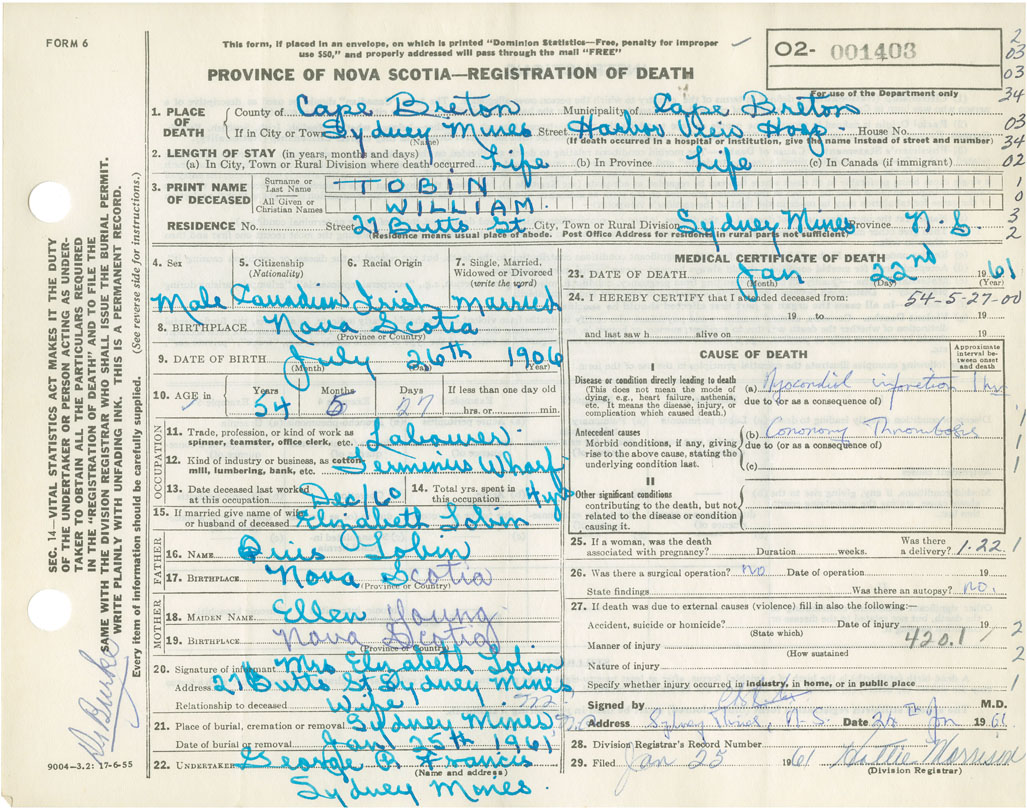 FORM 6
This form, if placed in an envelope, on which is printed "Dominion Statistics—Free, penalty for improper
use $50," and properly addressed will pass through the mail "FREE"
O2- 001403
For use of the Department only
PROVINCE OF NOVA SCOTIA—REGISTRATION OF DEATH
1. PLACE OF DEATH
County of Cape Breton Municipality of Cape Breton
If in City or Town Sydney Mines Street Harbor View Hosp. House No.
(Name) (If death occurred in a hospital or institution, give the name instead of street and number)
2. LENGTH OF STAY (in years, months and days)
(a) In City, Town or Rural Division where death occurred Life (b) In Province Life (c) In Canada (if immigrant)
3. PRINT NAME OF DECEASED
Surname or Last Name TOBIN
All Given or Christian Names WILLIAM
RESIDENCE No. Street 27 Butts St. City, Town or Rural Division Sydney Mines Province N.S.
(Residence means usual place of abode. Post Office Address for residents in rural parts not sufficient)
4. Sex 5. Citizenship (Nationality) 6. Racial Origin 7. Single, Married, Widowed or Divorced (write the word)
Male Canadian Irish Married
8. BIRTHPLACE Nova Scotia
(Province or Country)
9. DATE OF BIRTH July 26th 1906
(Month) (Day) (Year)
10. AGE in Years Months Days If less than one day old
54 27 hrs. or min.
OCCUPATION
11. Trade, profession, or kind of work as spinner, teamster, office clerk, etc. Labourer
12. Kind of industry or business, as cotton mill, lumbering, bank, etc. Terminus Wharf
13. Date deceased last worked at this occupation Dec/60 14. Total yrs. spent in this occupation 4 yrs
15. If married give name of wife or husband of deceased Elizabeth Tobin
FATHER
16. NAME Pius Tobin
17. BIRTHPLACE Nova Scotia
(Province or Country)
MOTHER
18. MAIDEN NAME Ellen Young
19. BIRTHPLACE Nova Scotia
(Province or Country)
20. Signature of informant Mrs Elizabeth Tobin
Address 27 Butts St Sydney Mines
Relationship to deceased Wife
21. Place of burial, cremation or removal Sydney Mines
Date of burial or removal Jan 25th 1961
22. UNDERTAKER George P. Francis
(Name and address)
Sydney Mines
9004-3.2: 17-6-55
MEDICAL CERTIFICATE OF DEATH
23. DATE OF DEATH Jan 22nd 1961
(Month) (Day) (Year)
24. I HEREBY CERTIFY that I attended deceased from: 54-5-27-00
19 to 19
and last saw h alive on 19
CAUSE OF DEATH
Approximate interval between onset and death
I
Disease or condition directly leading to death
(This does not mean the mode of dying, e.g., heart failure, asthenia, etc. It means the disease, injury, or complication which caused death.)
(a) Myocardial infarction
due to (or as a consequence of)
Antecedent causes
Morbid conditions, if any, giving rise to the above cause, stating the underlying condition last.
(b) Coronary Thrombosis
due to (or as a consequence of)
(c)
II
Other significant conditions
contributing to the death, but not related to the disease or condition causing it.
25. If a woman, was the death associated with pregnancy? Duration weeks. Was there a delivery? 1.22.1
26. Was there a surgical operation? no Date of operation 19
State findings Was there an autopsy? no.
27. If death was due to external causes (violence) fill in also the following:—
Accident, suicide or homicide? Date of injury 19
(State which)
Manner of injury 420.1
(How sustained
Nature of injury
Specify whether injury occurred in industry, in home, or in public place
Signed by M.D.
Address Sydney Mines, N.S. Date 24th Jan 1961
28. Division Registrar's Record Number
29. Filed Jan 25 1961 Hattie Morrison
(Division Registrar)
2
03
03
34
03
34
02
1
0
3
2
1
1
1
2
2
1
SEC. 14—VITAL STATISTICS ACT MAKES IT THE DUTY
OF THE UNDERTAKER OR PERSON ACTING AS UNDER-
TAKER TO OBTAIN ALL THE PARTICULARS REQUIRED
IN THE "REGISTRATION OF DEATH" AND TO FILE THE
SAME WITH THE DIVISION REGISTRAR WHO SHALL ISSUE THE BURIAL PERMIT.
WRITE PLAINLY WITH UNFADING INK. THIS IS A PERMANENT RECORD.
Every item of information should be carefully supplied. (See reverse side for instructions.)